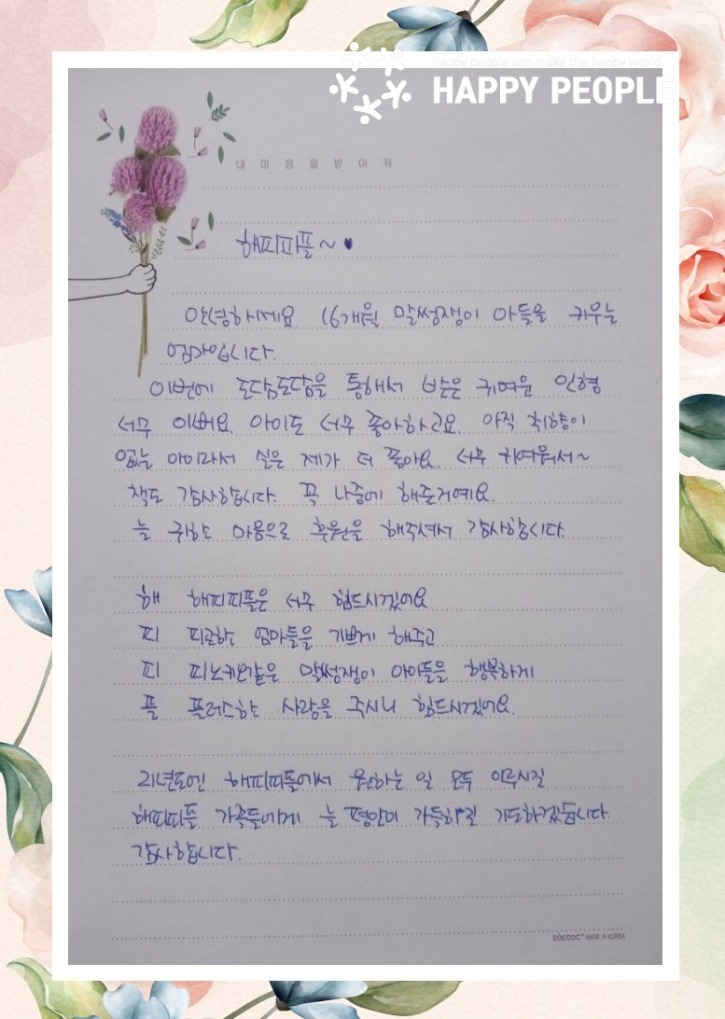 happy people can make the happy world
HAPPY PEOPLE
내 마 음 을 받 아 줘
해피피플~♥
안녕하세요 16개월 말썽쟁이 아들을 키우는
엄마입니다.
이번에 도담도담을 통해서 받은 귀여운 인형
너무 이뻐요. 아이도 너무 좋아하고요. 아직 취향이
없는 아이라서 실은 제가 더 좋아요. 너무 귀여워서~
책도 감사합니다. 꼭 나중에 해준거예요.
늘 귀한 마음으로 후원을 해주셔서 감사합니다.
해 해피피플은 너무 힘드시겠어요
피 피로한 엄마들을 기쁘게 해주고
피 피노키오같은 말썽쟁이 아이들을 행복하게
플 플러스한 사랑을 주시니 힘드시겠어요.
21년도엔 해피피플에서 원하는 일 모두 이루시길
해피피플 가족들에게 늘 평안이 가득하길 기도하겠습니다.
감사합니다.
tóctoc™ MADE IN KOREA